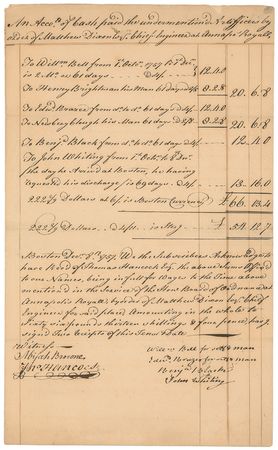 An Accot. of Cash paid the undermentioned Artificers by
order of Matthew Dixon Esqr. Chief Engineer at Annapolis Royall,
To Willm. Bell from 1st. Octr. 1757
is 2 Mos. or 61 days 12.4.0
To Henry Brightman his Man 61 days 8.2.8 20.6.8
To Edwd. Brazer from do. to do. 61 days 12.4.0
To his Man 61 days 8.2.8 20.6.8
To Benja. Black from do. to do. 61 days 12.4.0
To John Whiting from 1st. Octr. to
the day he Arriv'd at Boston, he having
requested his discharge is 69 days 13.16.0
222 Dollars at 6/ is Boston Currency £ 66.13.4
222 Dollars Sterg. £ 54.12.7
Boston Decr. 8th. 1757. We the Subscribers Acknowledge to
have Recd. of Thomas Hancock Esq. the above sums affixed
to our Names, being in full for Wages to the Time above
mentioned in the Service of the Honble. Board of Ordnance at
Annapolis Royall, by order of Matthew Dixon Esqr. Chief
Engineer for said place Amounting in the whole to
Sixty six pounds thirteen shillings & four pence, having
signed this Receipts of this Tenor & date
Witness
Willm. Bell for self & man
Abijah
Edwd. Brazer for self & man
Jno. Hancock
Benja. Black
John Whiting